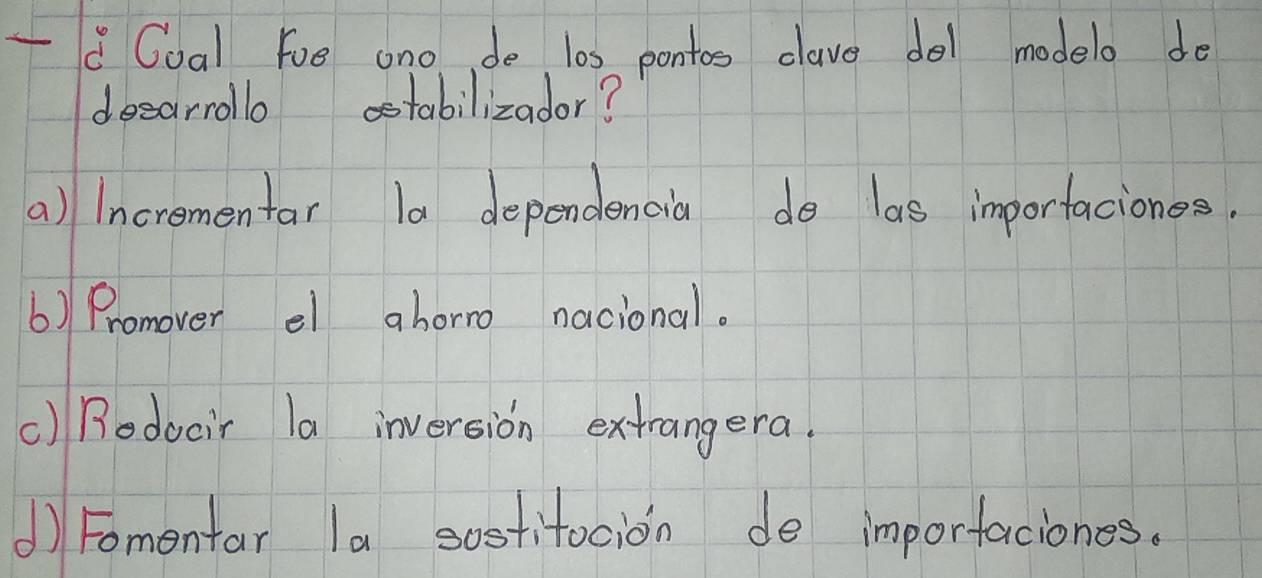 - ¿Cual fue uno de los puntos clave del modelo de
desarrollo estabilizador?
a) Incrementar la dependencia de las importaciones.
b) Promover el ahorro nacional.
c) Reducir la inversión extrangera.
d) Fomentar la sustitución de importaciones.